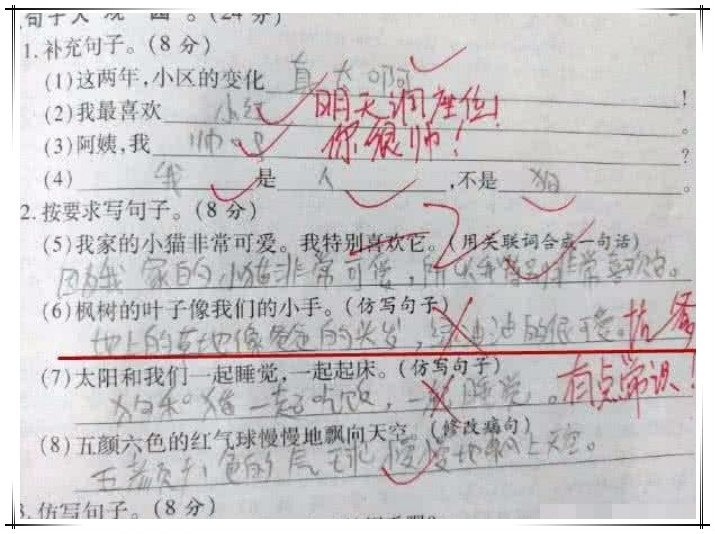 句子大观园。(24分)
1.补充句子。(8分)
(1)这两年,小区的变化 真大啊 !
(2)我最喜欢 小红 。 明天调座位!
(3)阿姨,我 帅吗 ? 你很帅!
(4) 我 是 人 ,不是 狗 。
2.按要求写句子。(8分)
(5)我家的小猫非常可爱。我特别喜欢它。(用关联词合成一句话)
因为我家的小猫非常可爱,所以我特别非常喜欢它。
(6)枫树的叶子像我们的小手。(仿写句子)
地上的草地像爸爸的头发,绿油油的很可爱。
(7)太阳和我们一起睡觉,一起起床。(仿写句子)
狗和猫一起吃饭,一起睡觉。 有点常识!
(8)五颜六色的红气球慢慢地飘向天空。(修改病句)
五颜六色的气球慢慢地飘上天空。
3.仿写句子。(8分)